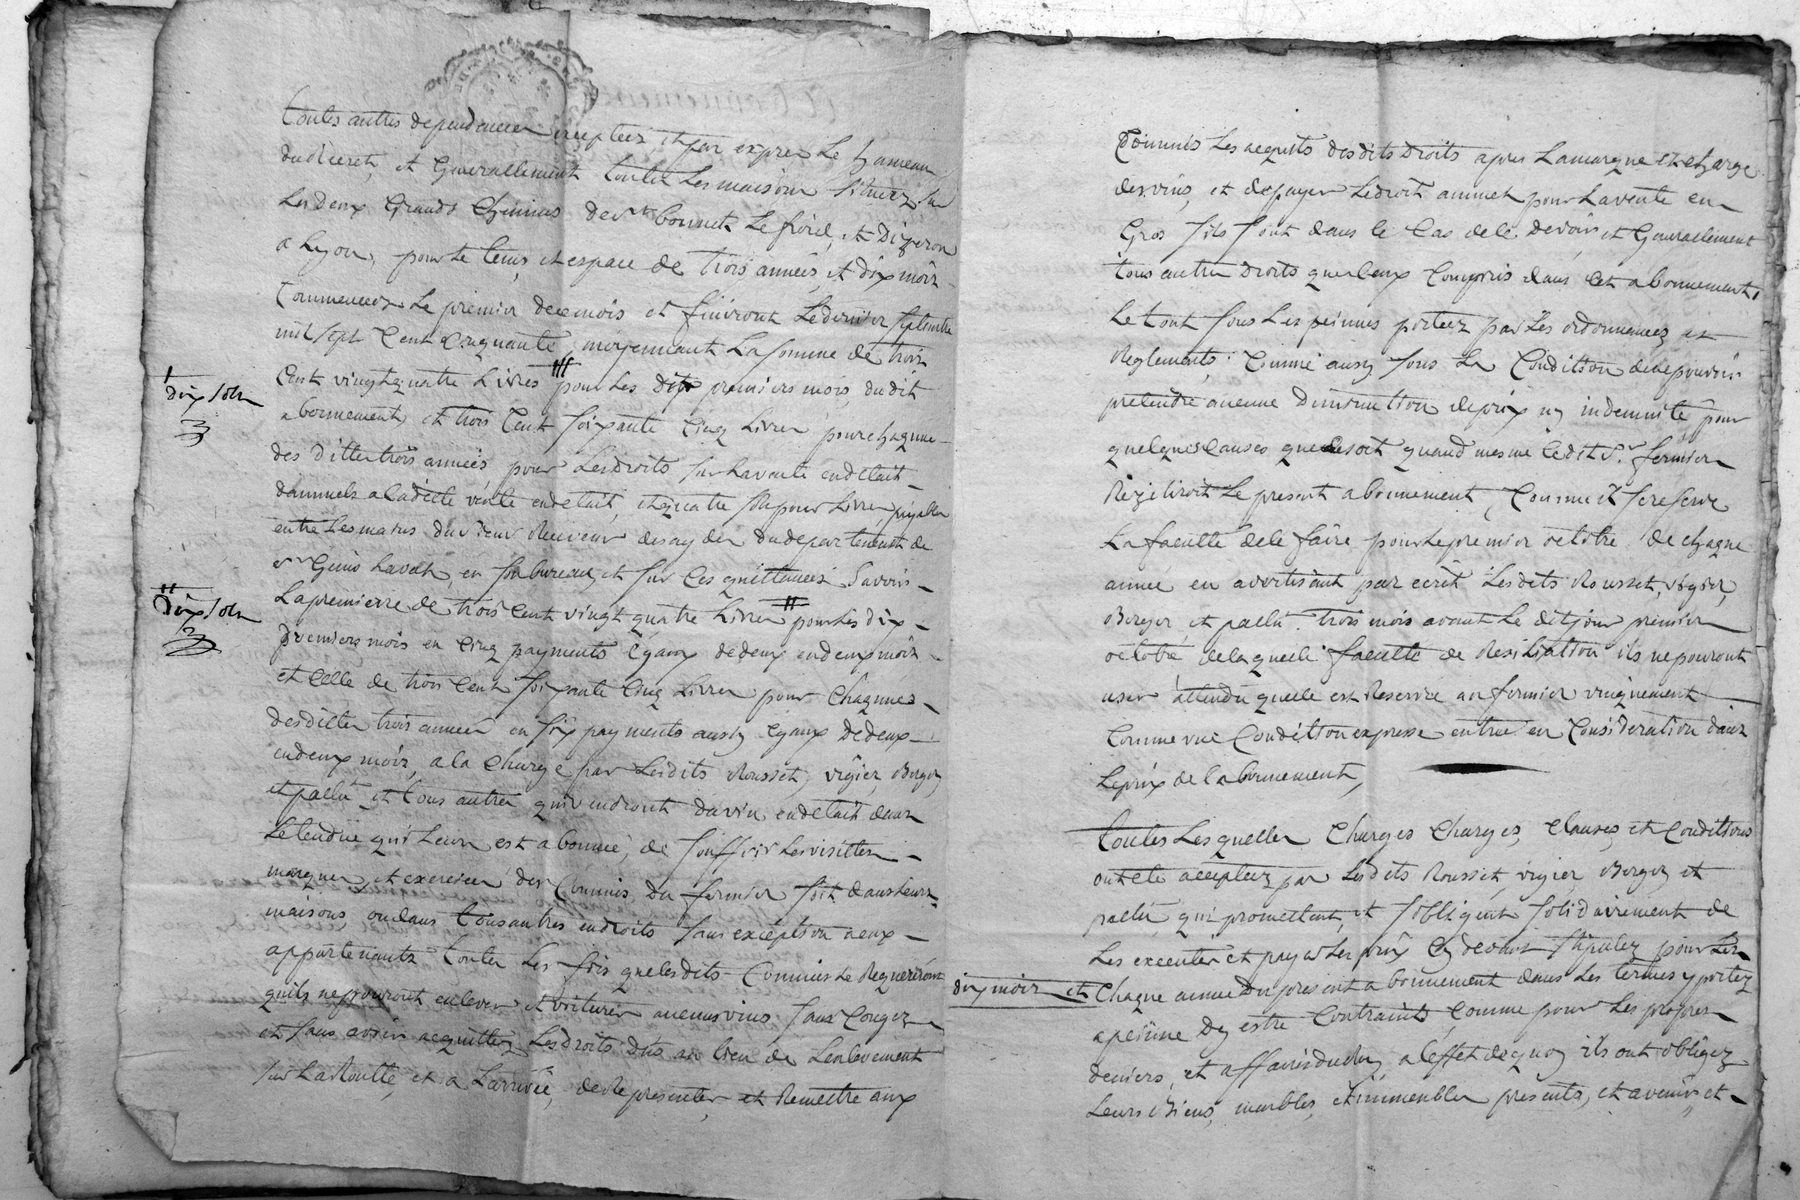 toutes autres dependances exceptees, et par expres Le hameau
du dicret, et Generallement toutes Les maisons situees sur
Les deux Grands Chemins de st. bonnet Le froid, et Dizeron
a Lyon, pour Le tems et espace de trois années, et dix mois
Commencees Le premier de ce mois et finiront Le dernier septembre
mil sept Cent Cinquante, moyennant La somme de trois
Cent vingt quatre Livres pour Les dix premiers mois du dit
dix sols
abonnement, et trois Cent soixante Cinq Livres pour chaqune
des dittes trois années pour Les droits sur La vente en detail
d'annuels a la ditte vente en detail, et quatre sols pour Livre, payables
entre Les mains du sieur Receveur des aydes du departement de
st Genis Laval, en son bureau, et sur Ces quittances Savoir
La premierre de trois Cent vingt quatre Livres pour Les dix
dix sols
premiers mois en Cinq payments Egaux de deux en deux mois
et Celle de trois Cent soixante Cinq Livres pour Chaqunes
des dittes trois années en six payments aussy Egaux de deux
en deux mois, a la Charge par Lesdits Rousset, vigier, Berger
et pallu et tous autres qui vendront du vin en detail dans
Letendüe qui Leur est abonnée, de souffrir Les visittes
marques, et exercices des Commis du fermier soit dans Leurs
maisons, ou dans tous autres endroits sans exception a eux
appartenants toutes Les fois que lesdits Commis Le Requereront
quils ne pouront enlever et voiturer aucuns vins sans Congez
et sans avoir acquittez Les droits dus au lieu de Lenlevement
sur La Routte, et a Larrivée, de Representer et Remettre aux
Commis Les acquits desdits Droits apres La marque et charge
des vins, et de payer Le droit annuel pour La vente en
Gros sils sont dans le Cas de le devoir et Generallement
tous autres Droits que Ceux Compris dans Cet abonnement,
Le tout sous Les peinnes portées par Les ordonnances et
Reglements; Comme aussy sous La Condition de ne pouvoir
pretendre aucune Diminution de prix ny indemnité pour
quelques Causes que Ce soit quand mesme Ledit sr. fermier
Rezilieroit Le present abonnement, Comme il se reserve
La faculté de le faire pour Le premier octobre de chaque
année en avertisant par ecrit Lesdits Rousset, vigier,
Berger, et pallu trois mois avant Le dit jour premier
octobre de laquelle faculté de Resiliation ils ne pouront
user attendu quelle est Reservée au fermier uniquement
Comme une Condition expresse entrée en Consideration dans
Le prix de l'abonnement,
toutes Lesquelles Charges Charges, Clauses, et Conditions
ont été acceptées par Lesdits Rousset, vigier, Berger et
pallu, qui promettent, et s'obligent solidairement de
Les executer et payer Les prix Cy devant stipulez pour Les
dix mois et Chaque année Du present abonnement dans Les termes y portez
a peinne Dy estre Contraints Comme pour Les propres
deniers, et affaires du Roy, a l'effet de quoy ils ont obligez
Leurs Biens, meubles, et immeubles presents, et avenir, et